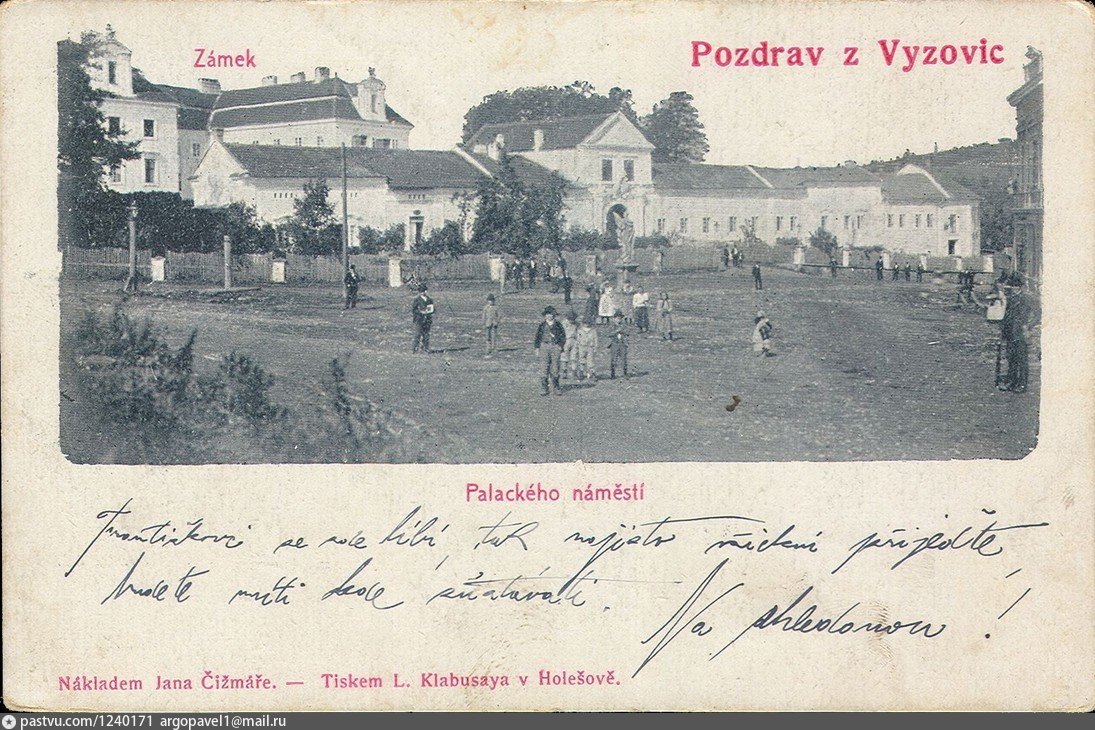 Zámek
Pozdrav z Vyzovic
Palackého náměstí
Františkovi se zde líbí, tak najisto všickni přijeďte
budete míti kde
Na shledanou!
Nákladem Jana Čižmáře. — Tiskem L. Klabusaya v Holešově.
pastvu.com/1240171 argopavel1@mail.ru